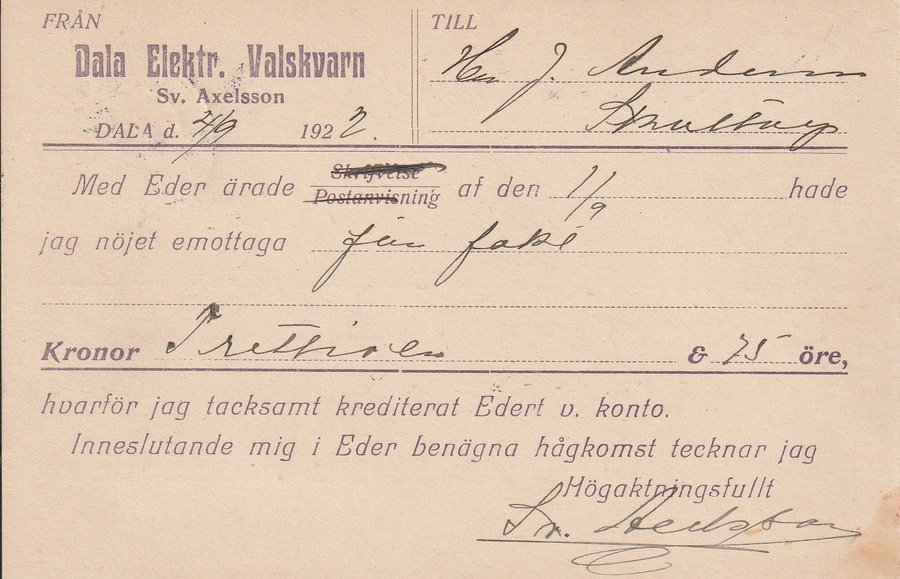 FRÅN
Dala Elektr. Valskvarn
Sv. Axelsson
DALA d. 2/9 1922.
TILL
Herr J. Anderson
Med Eder ärade Skrifvelse
Postanvisning af den 1/9 hade
jag nöjet emottaga
Kronor Trettioen & 75 öre,
hvarför jag tacksamt krediterat Edert v. konto.
Inneslutande mig i Eder benägna hågkomst tecknar jag
Högaktningsfullt
Sv. Axelsson